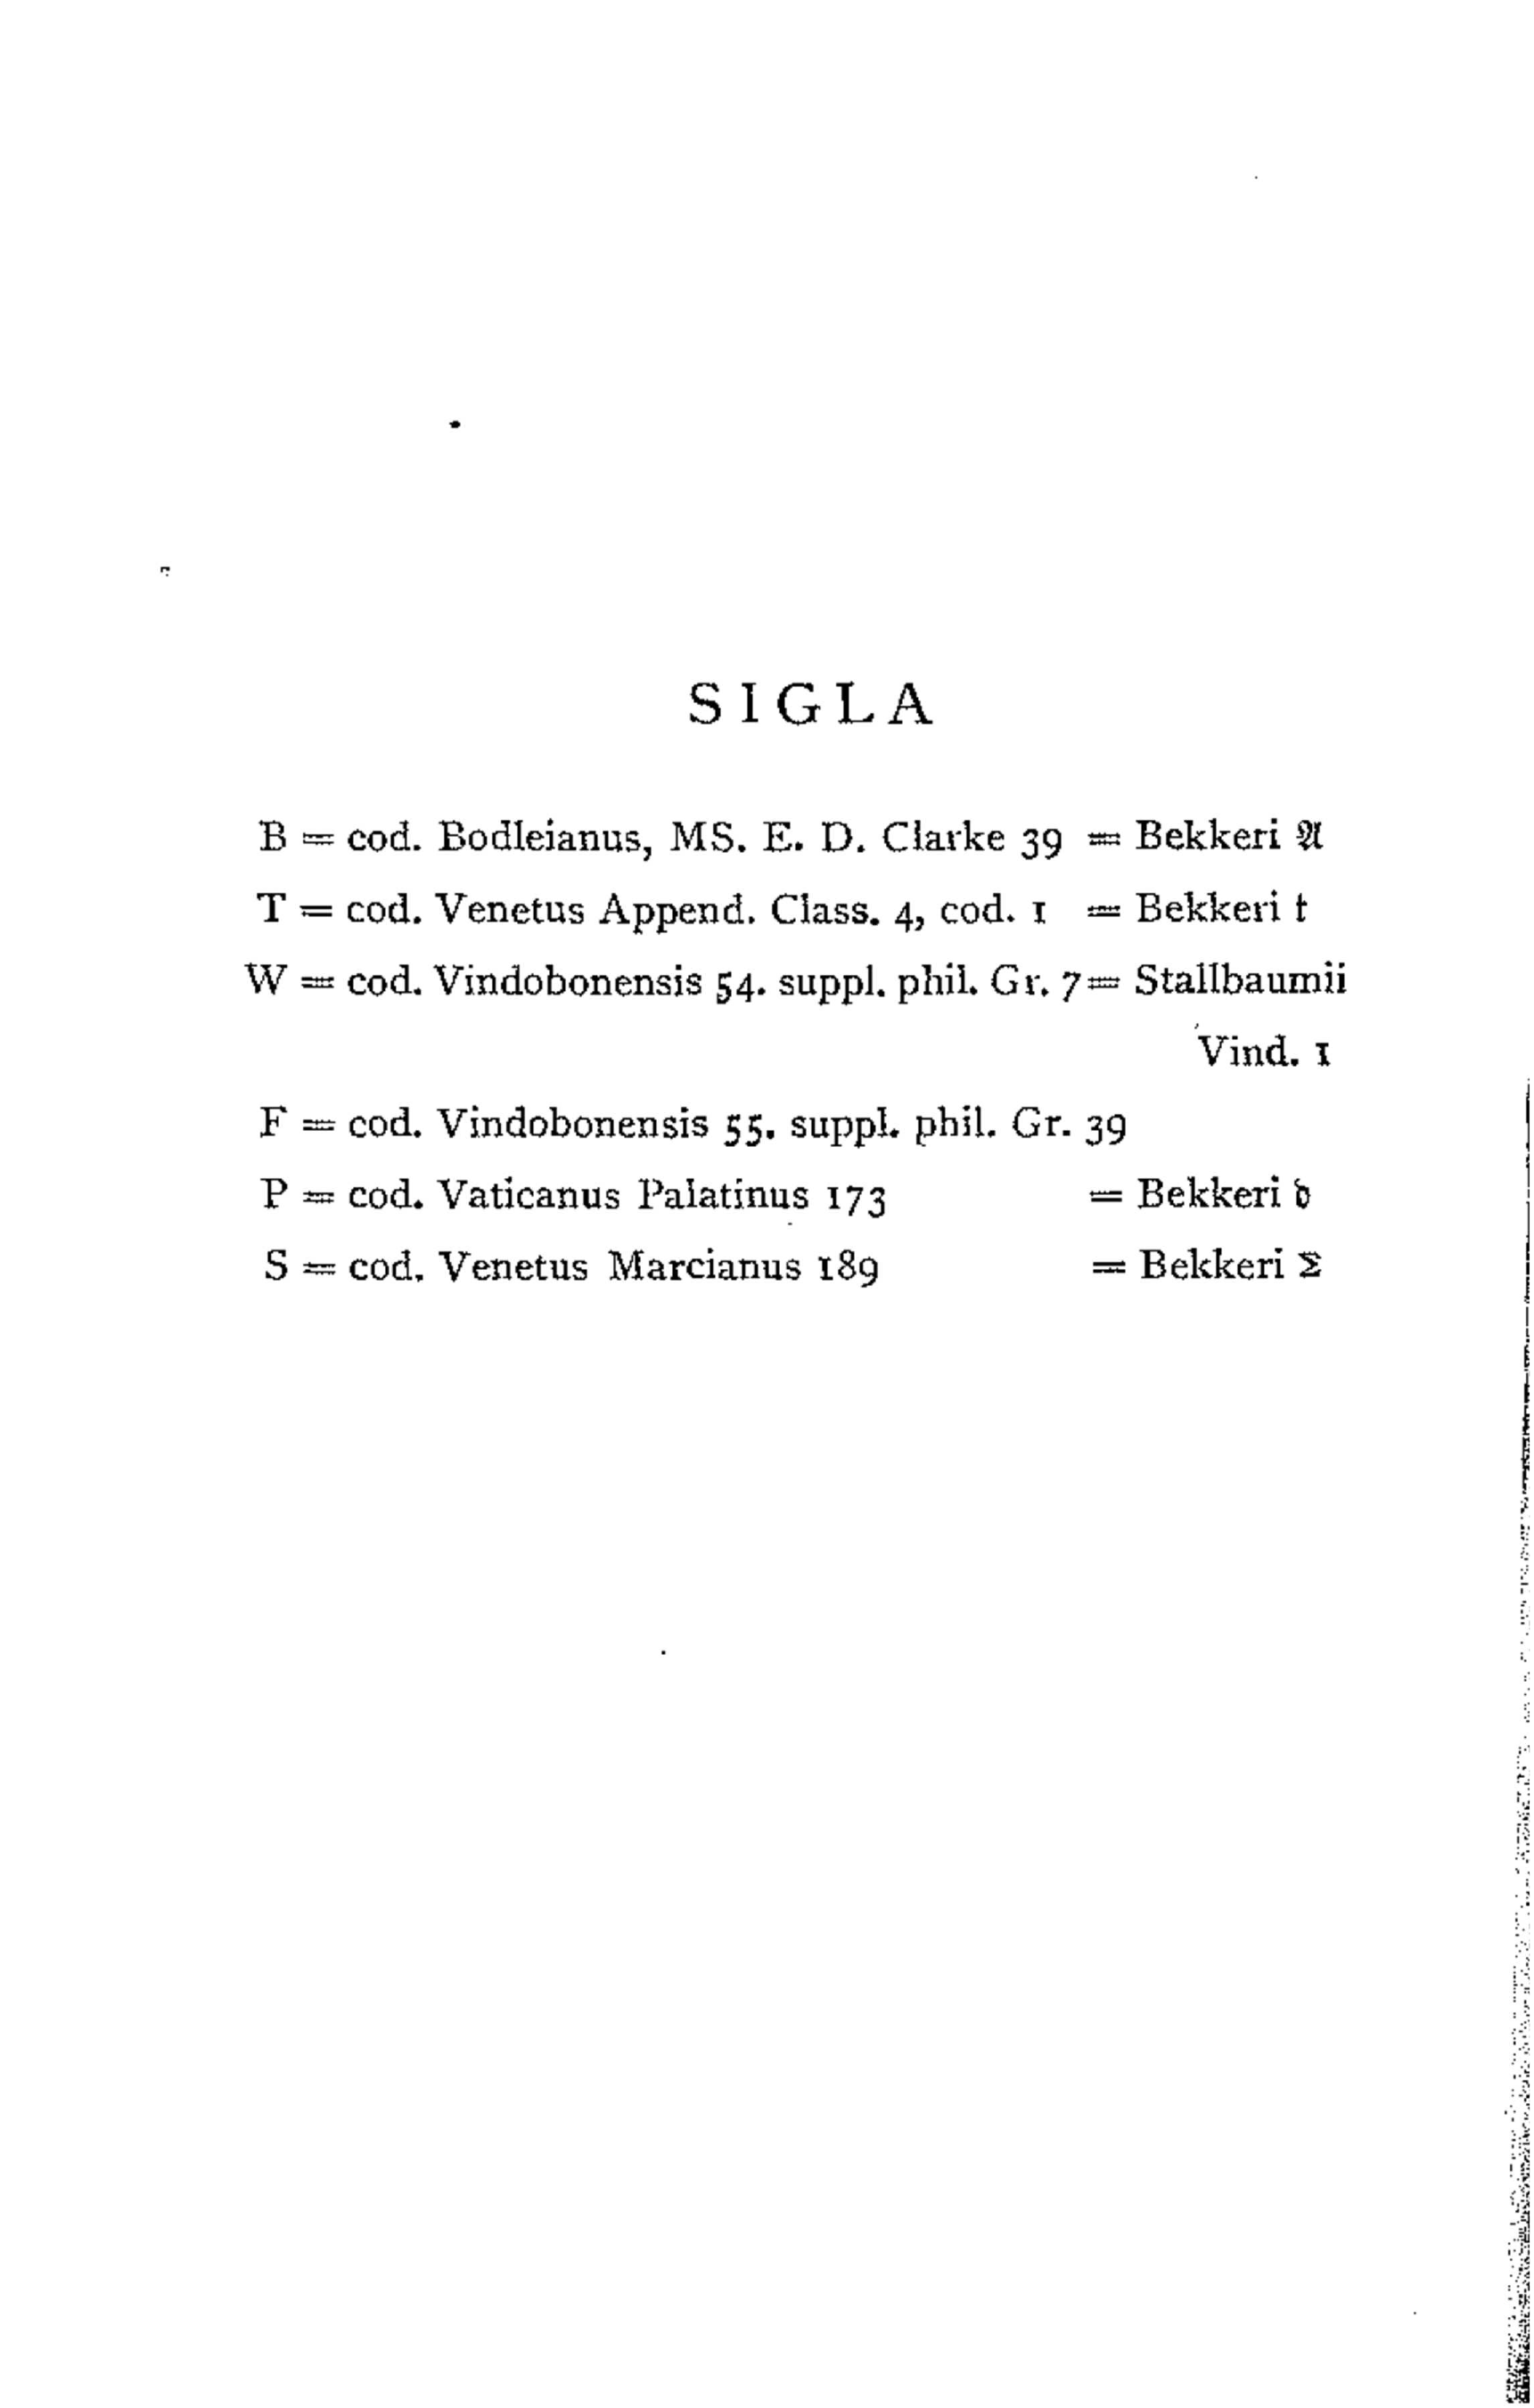 SIGLA
B = cod. Bodleianus, MS. E. D. Clarke 39 = Bekkeri 𝔄
T = cod. Venetus Append. Class. 4, cod. 1 = Bekkeri t
W = cod. Vindobonensis 54. suppl. phil. Gr. 7 = Stallbaumii
Vind. 1
F = cod. Vindobonensis 55. suppl. phil. Gr. 39
P = cod. Vaticanus Palatinus 173 = Bekkeri 𝔡
S = cod. Venetus Marcianus 189 = Bekkeri Σ